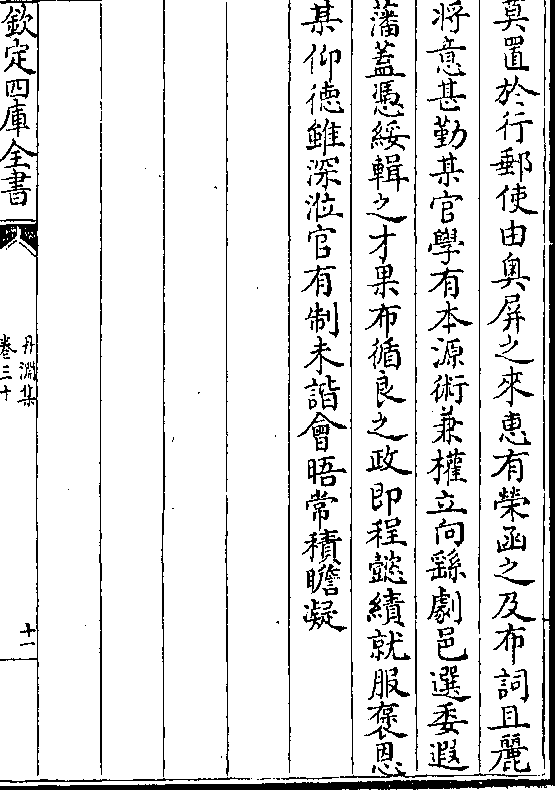 莫置於行郵使由奥屏之來惠有榮函之及布詞且麗
将意甚勤某官學有本源術兼權立向繇劇邑選委遐
藩蓋憑綏輯之才果布循良之政即程懿績就服褒恩
某仰徳雖深涖官有制未諧會晤常積瞻凝
欽定四庫全書
丹淵集
卷三十
十一